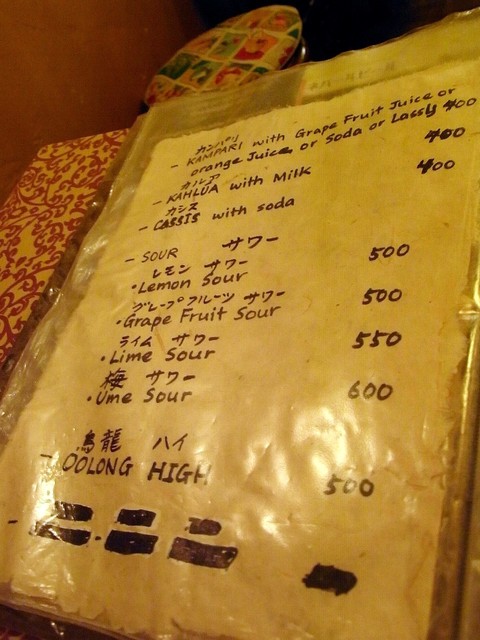 カンパリ
- KAMPARI with Grape Fruit Juice or
orange Juice, or Soda or Lassy 400
カルア
- KAHLUA with Milk 400
カシス
- CASSIS with soda 400
- SOUR サワー
レモン サワー
・Lemon Sour 500
グレープフルーツ サワー
・Grape Fruit Sour 500
ライム サワー
・Lime Sour 550
梅 サワー
・Ume Sour 600
烏龍 ハイ
- OOLONG HIGH 500